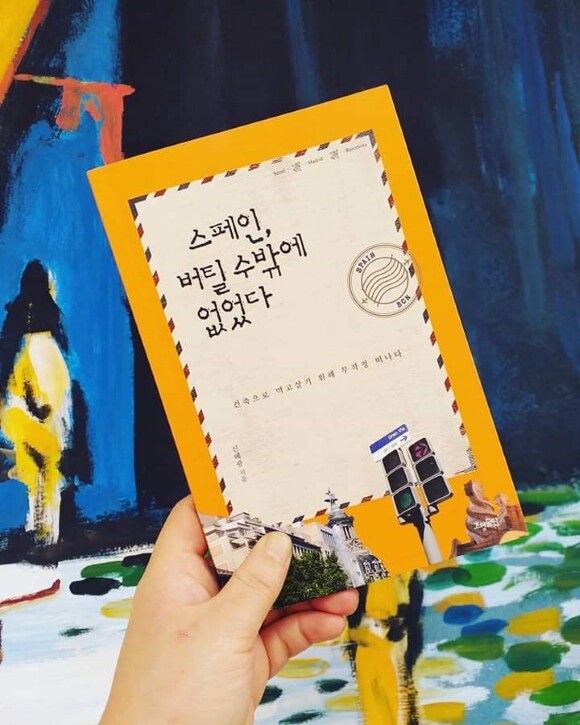 Seoul Madrid Barcelona
스페인,
버틸 수밖에
없었다
SPAIN
BCN
건축으로 먹고살기 위해 무작정 떠나다
신혜광 지음
Gran Vía